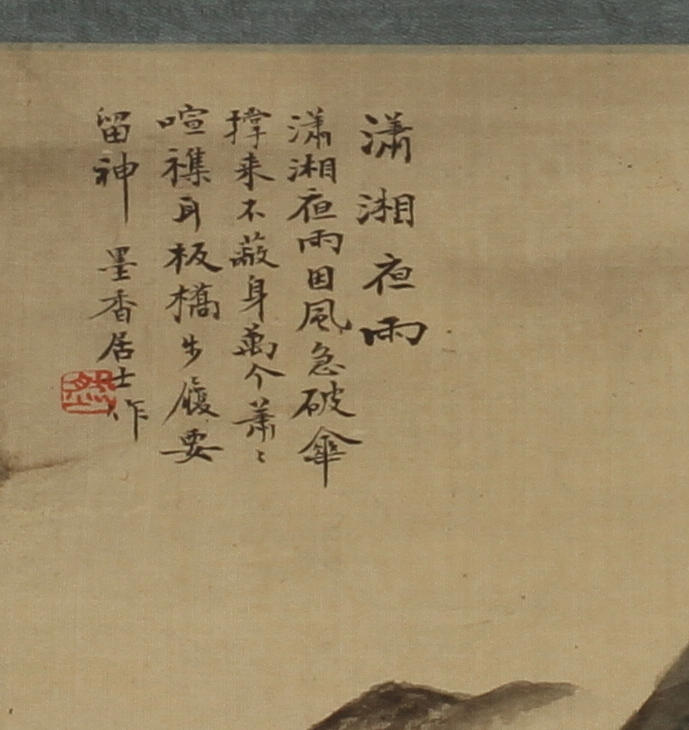 瀟湘夜雨
瀟湘夜雨因風急破傘
撑来不蔽身萬个蕭〻
喧襍耳板橋步履要
留神 墨香居士作